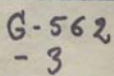 G-562
-3